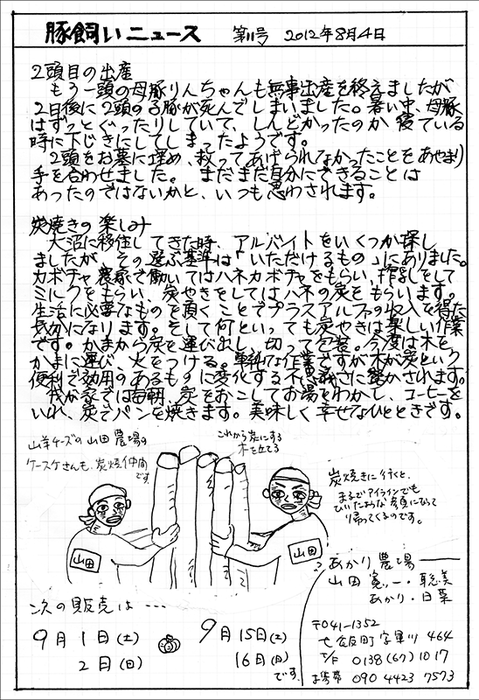 豚飼いニュース 第11号 2012年8月4日
2頭目の出産
もう一頭の母豚りんちゃんも無事出産を終えましたが
2日後に2頭の子豚が死んでしまいました。暑い中、母豚
はずっとぐったりしていて、しんどかったのか寝ている
時に下じきにしてしまったようです。
2頭をお墓に埋め、救ってあげられなかったことをあやまり
手を合わせました。まだまだ自分にできることは
あったのではないかと、いつも思わされます。
炭焼きの楽しみ
大沼に移住してきた時、アルバイトをいくつか探し
ましたが、その選ぶ基準は「いただけるもの」にありました。
カボチャ農家で働いてはハネカボチャをもらい、作
ミルクをもらい、炭やきをしてはハネの炭をもらいます。
生活に必要なものを頂くことでプラスアルファの収入を得た
気分になります。そして何といっても炭やきは楽しい作業
です。かまから炭を運び出し、切って包装。今度は木を
かまに運び、火をつける。単純な作業ですが木が炭という
便利で効用のあるものに変化する不思議さに驚かされます。
我が家では毎朝、炭をおこしてお湯をわかし、コーヒーを
いれ、炭でパンを焼きます。美味しく幸せなひとときです。
山羊チーズの山田農場の
ケースケさんも、炭焼仲間
です。
これから炭にする
木を立てる
炭焼きに行くと、
まるでアイラインでも
ひいたような顔になって
帰ってくるのです。
山田
山田
次の販売は・・・
9月1日(土)
2日(日)
9月15日(土)
16日(日)
です。
あかり農場
山田 寛 一・聡美
あかり・日菜
〒041-1352
七飯町字軍川 464
T/F 0138(67)1017
お携帯 090 4423 7573